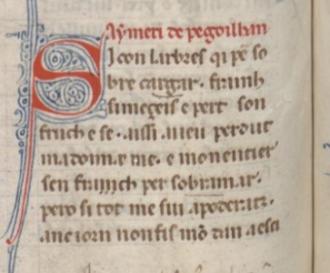 Aymeric de pegoillan
Si con larbres qi pe so
bre cargar. franh
si mezeis e pert son
fruch e se. aissi ai eu perdut
ma domn e me. e mon entier
sen fraich per sobramar.
pero si tot me sui apoderatz.
anc iorn non fis mō dan a esci